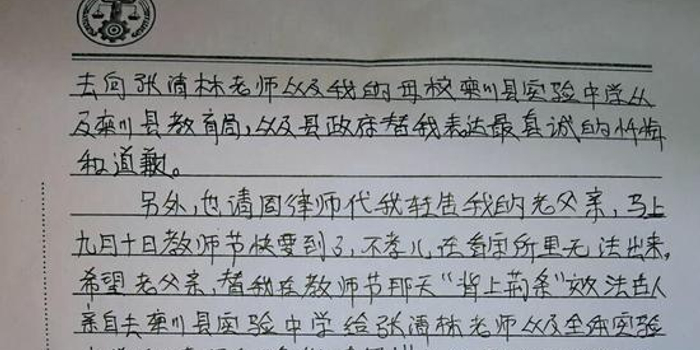 去向张清林老师以及我的母校栾川县实验中学以
及栾川县教育局,以及县政府替我表达最真诚的忏悔
和道歉。
另外,也请周律师代我转告我的老父亲,马上
九月十日教师节快要到了,不孝儿在看守所里无法出来,
希望老父亲,替我在教师节那天“背上荆条”效法古人
亲自去栾川县实验中学给张清林老师以及全体实验